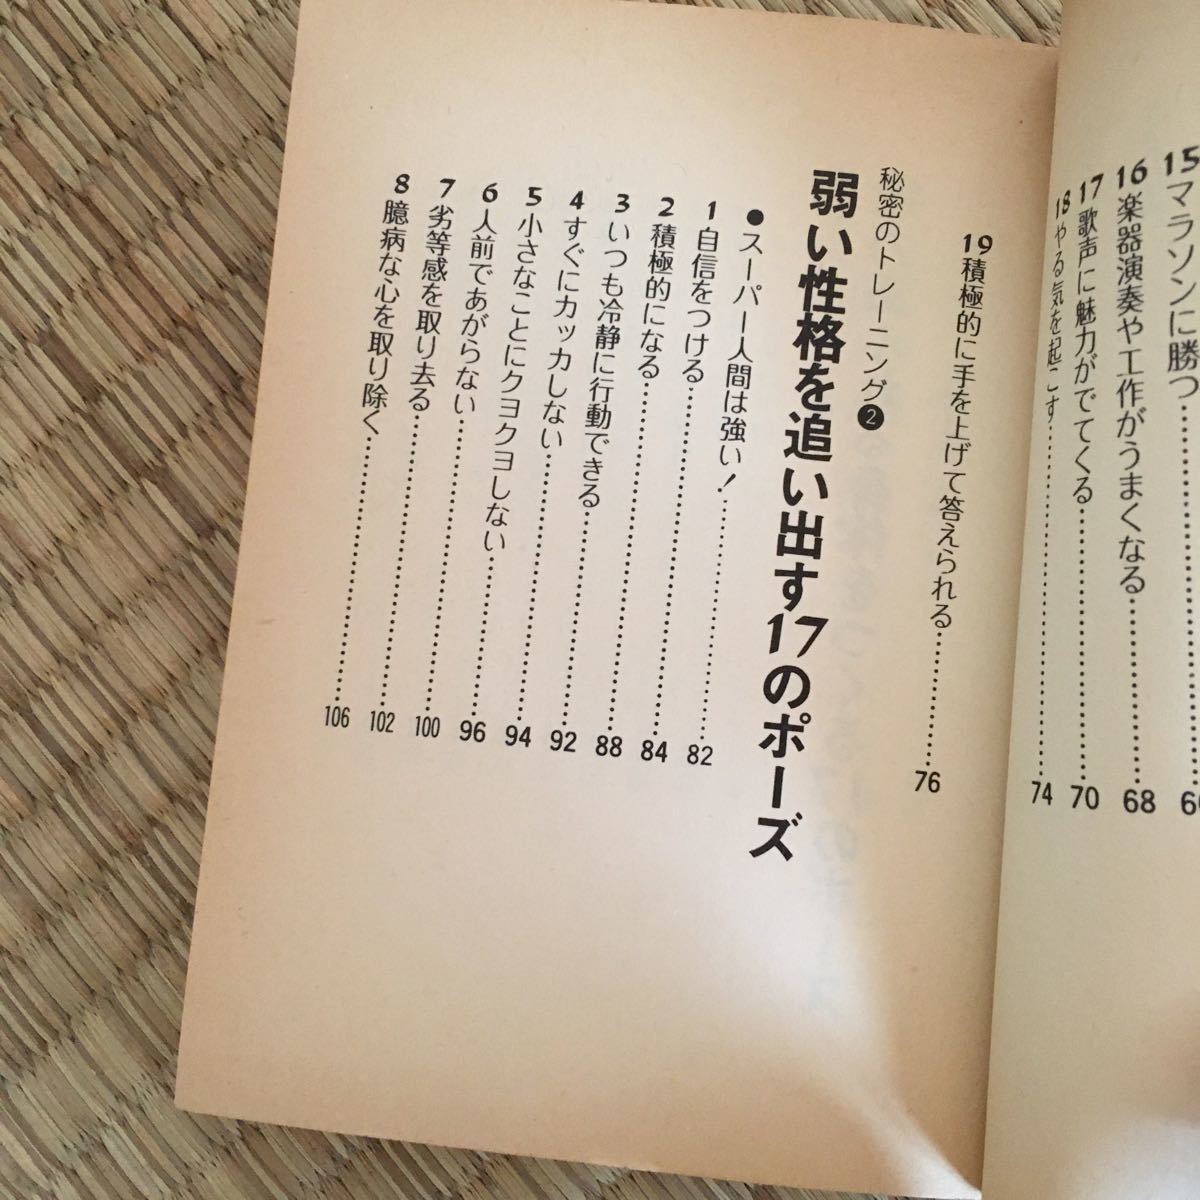 15 マラソンに勝つ
16 楽器演奏や工作がうまくなる…………68
17 歌声に魅力がでてくる…………70
18 やる気を起こす…………74
19 積極的に手を上げて答えられる…………76
秘密のトレーニング❷
弱い性格を追い出す17のポーズ
●スーパー人間は強い!…………82
1 自信をつける…………84
2 積極的になる…………88
3 いつも冷静に行動できる…………92
4 すぐにカッカしない…………94
5 小さなことにクヨクヨしない…………96
6 人前であがらない…………100
7 劣等感を取り去る…………102
8 臆病な心を取り除く…………106